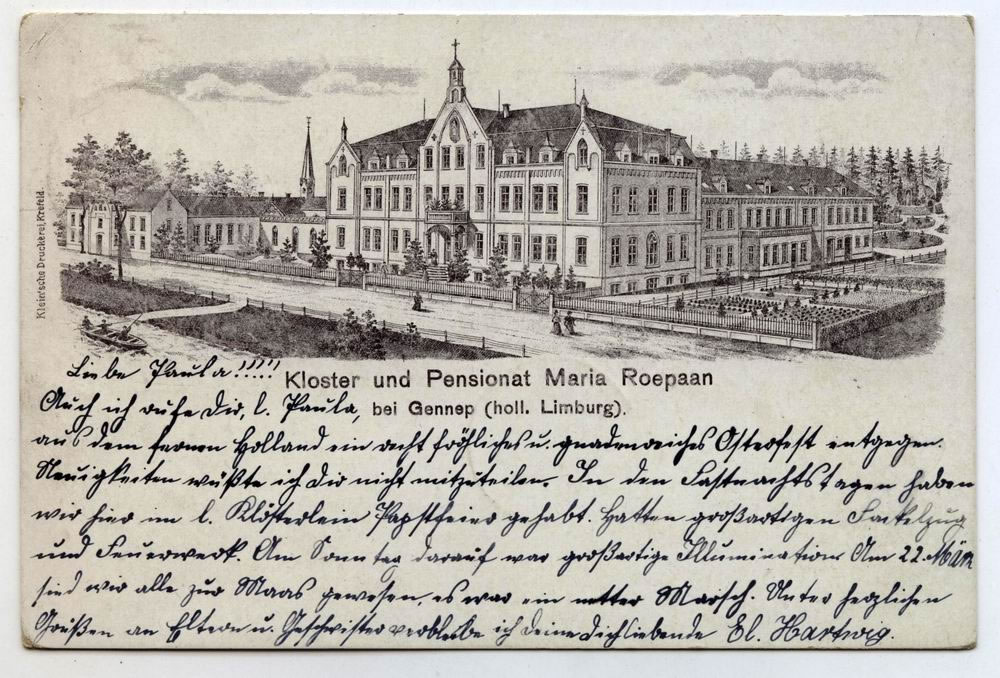 Klein'sche Druckerei, Krefeld.
Liebe Paula!!!!!
Kloster und Pensionat Maria Roepaan
Auch ich rufe Dir, l. Paula,
bei Gennep (holl. Limburg).
aus dem fernen Holland ein recht fröhliches u. gnadenreiches Osterfest entgegen.
Neuigkeiten wüßte ich dir nicht mitzuteilen. In den Fastnachtstagen haben
wir hier im l. Klösterlein Papstfeier gehabt. Hatten großartigen Fackelzug
und Feuerwerk. Am Sonntag darauf war großartige Illumination. Am 22. März
sind wir alle zur Maas gewesen, es war ein netter Marsch. Unter herzlichen
Grüßen an Eltern u. Geschwister verbleibe ich deine dichliebende El. Hartwig.